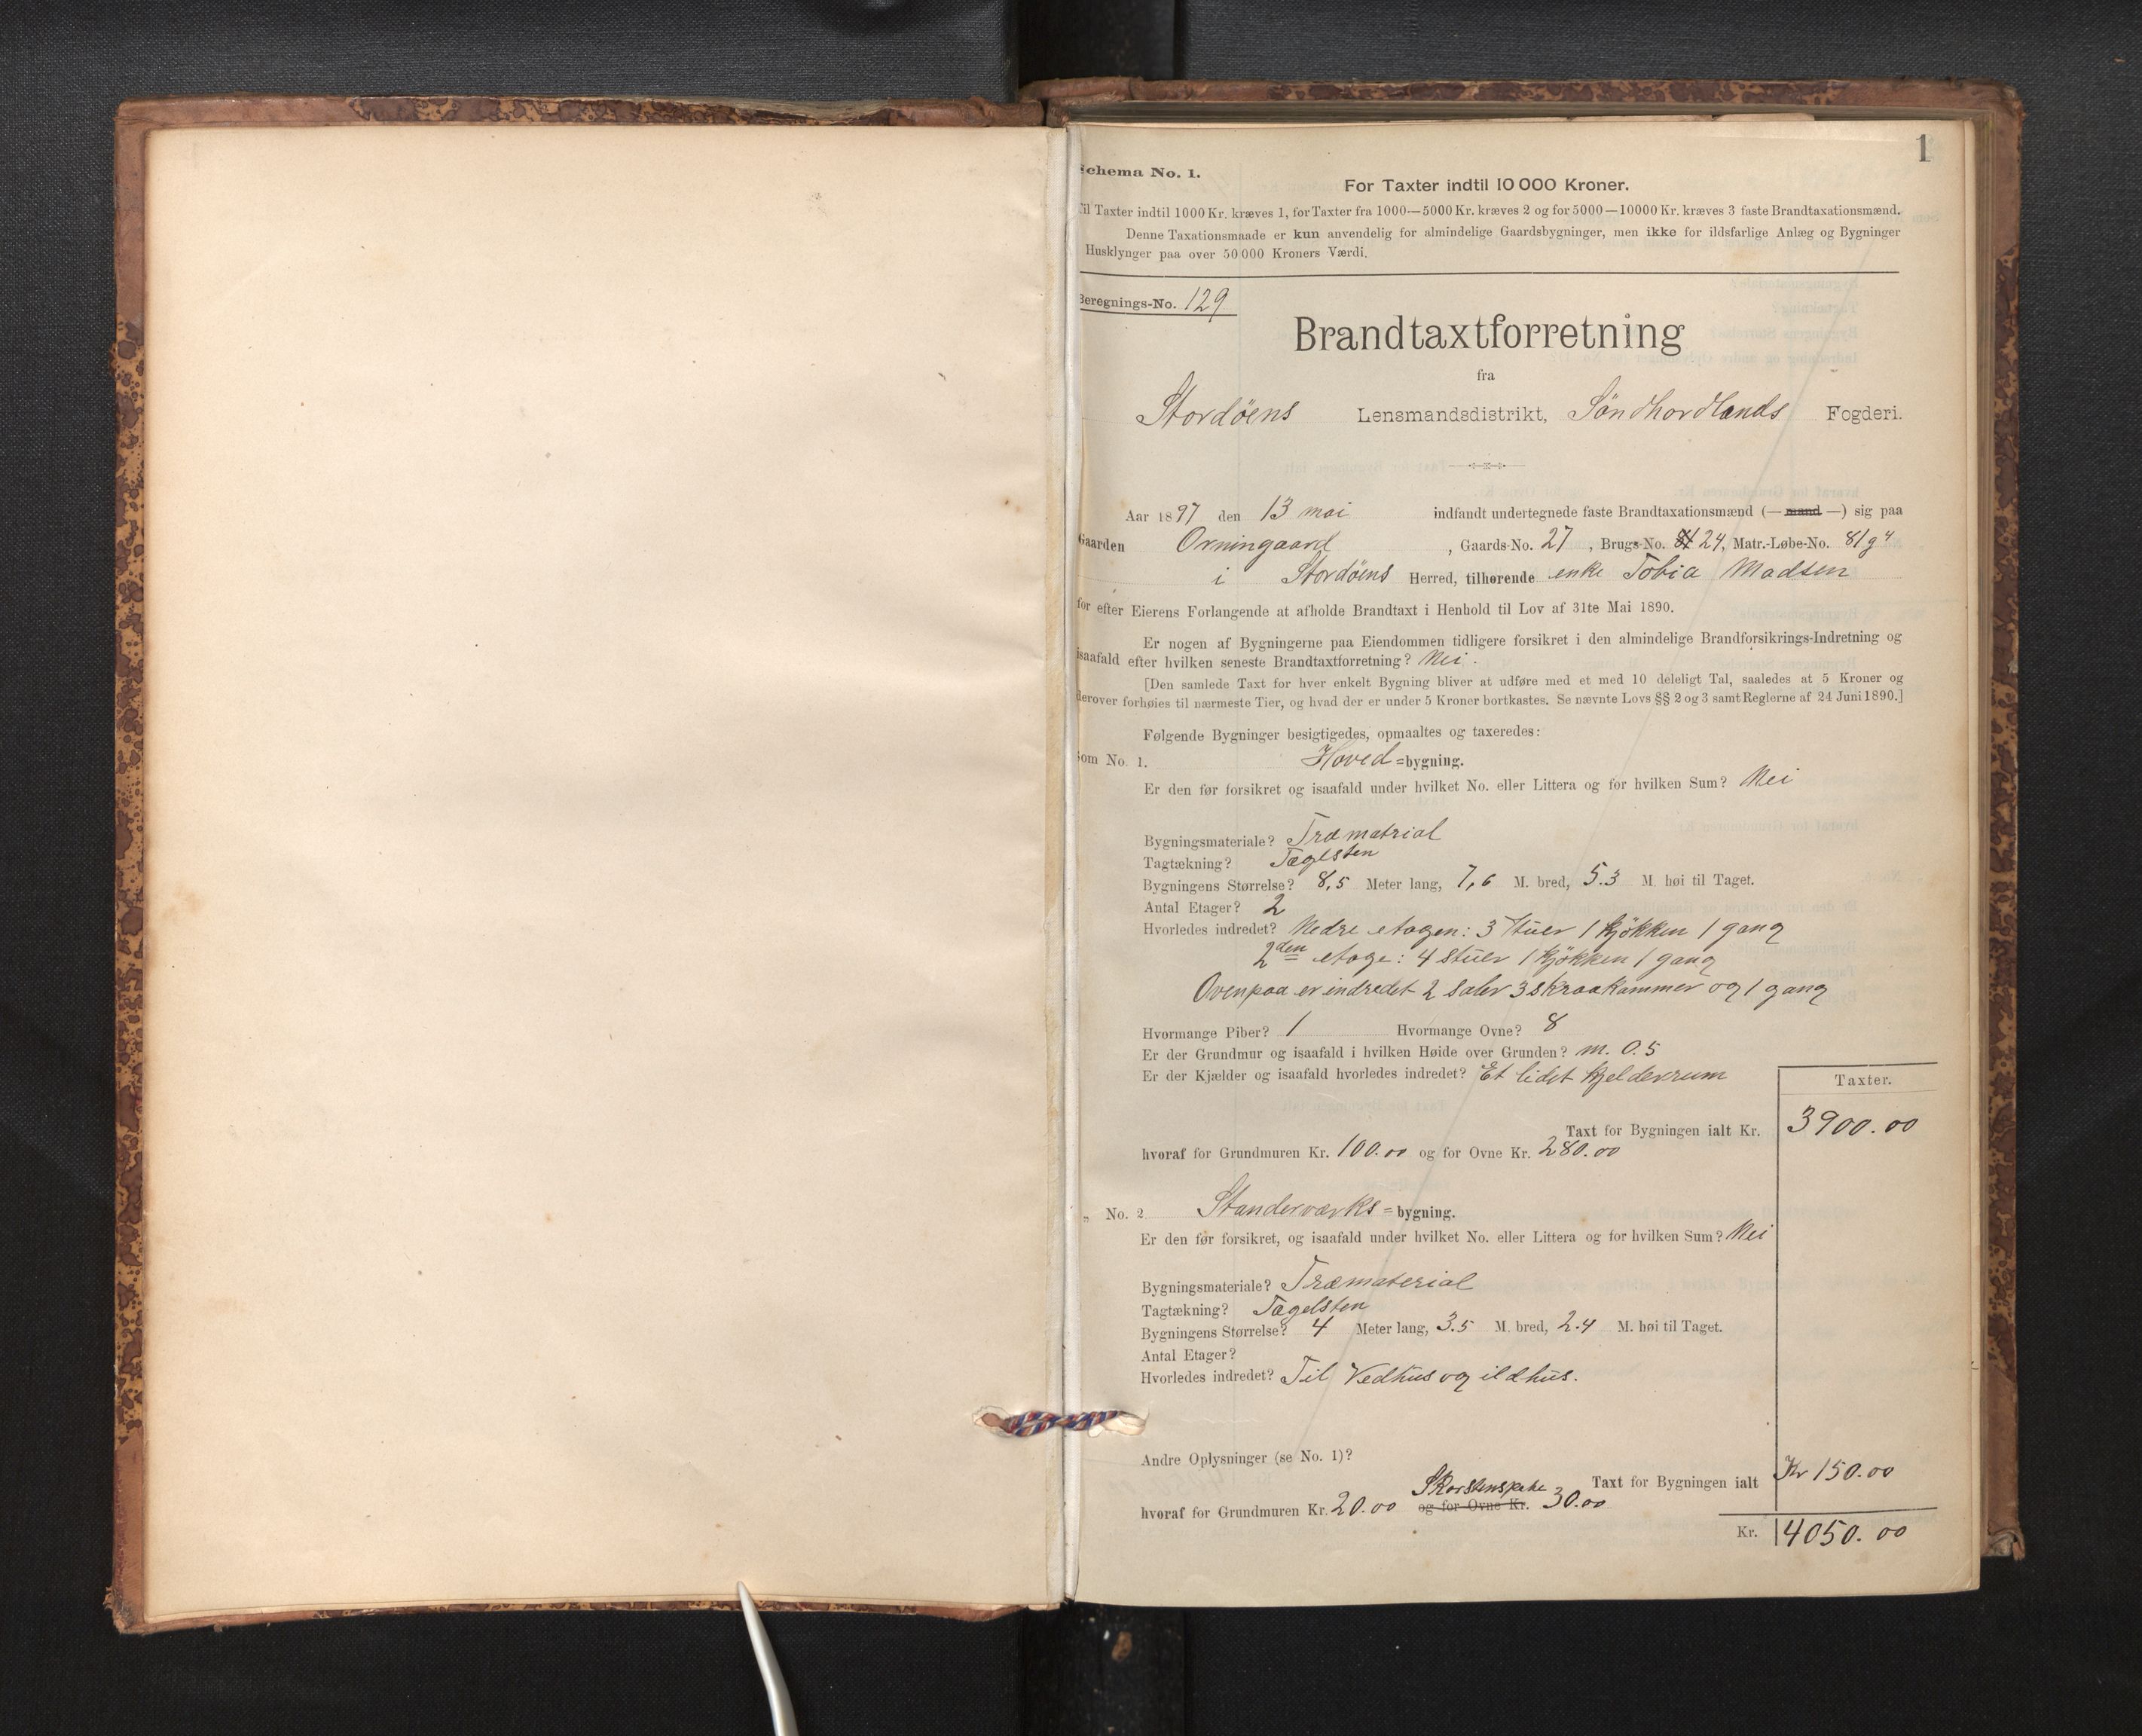 1
Schema No. 1.
For Taxter indtil 10 000 Kroner.
Til Taxter indtil 1000 Kr. kræves 1, for Taxter fra 1000—5000 Kr. kræves 2 og for 5000—10000 Kr. kræves 3 faste Brandtaxationsmænd.
Denne Taxationsmaade er kun anvendelig for almindelige Gaardsbygninger, men ikke for ildsfarlige Anlæg og Bygninger
Husklynger paa over 50 000 Kroners Værdi.
Beregnings-No. 129
Brandtaxtforretning
fra
Stordøens Lensmandsdistrikt, Söndhordlands Fogderi.
Aar 1897 den 13 mai indfandt undertegnede faste Brandtaxationsmænd (— mand —) sig paa
Gaarden Orningaard, Gaards-No. 27, Brugs-No. 24, Matr.-Løbe-No. 81g4
i Stordöens Herred, tilhørende enke Tobia Madsen
for efter Eierens Forlangende at afholde Brandtaxt i Henhold til Lov af 31te Mai 1890.
Er nogen af Bygningerne paa Eiendommen tidligere forsikret i den almindelige Brandforsikrings-Indretning og
isaafald efter hvilken seneste Brandtaxtforretning? Nei.
[Den samlede Taxt for hver enkelt Bygning bliver at udføre med et med 10 deleligt Tal, saaledes at 5 Kroner og
derover forhøies til nærmeste Tier, og hvad der er under 5 Kroner bortkastes. Se nævnte Lovs §§ 2 og 3 samt Reglerne af 24 Juni 1890.]
Følgende Bygninger besigtigedes, opmaaltes og taxeredes:
Som No. 1. Hoved=bygning.
Er den før forsikret og isaafald under hvilket No. eller Littera og for hvilken Sum? Nei
Bygningsmateriale? Træmatrial
Tagtækning? Tagelsten
Bygningens Størrelse? 8,5 Meter lang, 7,6 M. bred, 5.3 M. høi til Taget.
Antal Etager? 2
Hvorledes indredet? Nedre etagen: 3 stuer 1 kjökken 1 gang
2den etage: 4 stuer 1 kjökken 1 gang
Ovenpaa er indredet 2 saler 3 skraakammer og 1 gang
Hvormange Piber? 1 Hvormange Ovne? 8
Er der Grundmur og isaafald i hvilken Høide over Grunden? m. 0.5
Er der Kjælder og isaafald hvorledes indredet? Et lidet kjelderrum
Taxter.
Taxt for Bygningen ialt Kr. 3900.00
hvoraf for Grundmuren Kr. 100.00 og for Ovne Kr. 280.00
„ No. 2 Standerværks=bygning.
Er den før forsikret, og isaafald under hvilket No. eller Littera og for hvilken Sum? Nei
Bygningsmateriale? Træmaterial
Tagtækning? Tagelsten
Bygningens Størrelse? 4 Meter lang, 3.5 M. bred, 2.4 M. høi til Taget.
Antal Etager?
Hvorledes indredet? Til Vedhus og ildhus.
Andre Oplysninger (se No. 1)?
Taxt for Bygningen ialt Kr 150.00
hvoraf for Grundmuren Kr. 20.00 og for Ovne Kr. 30.00
Kr. 4050.00